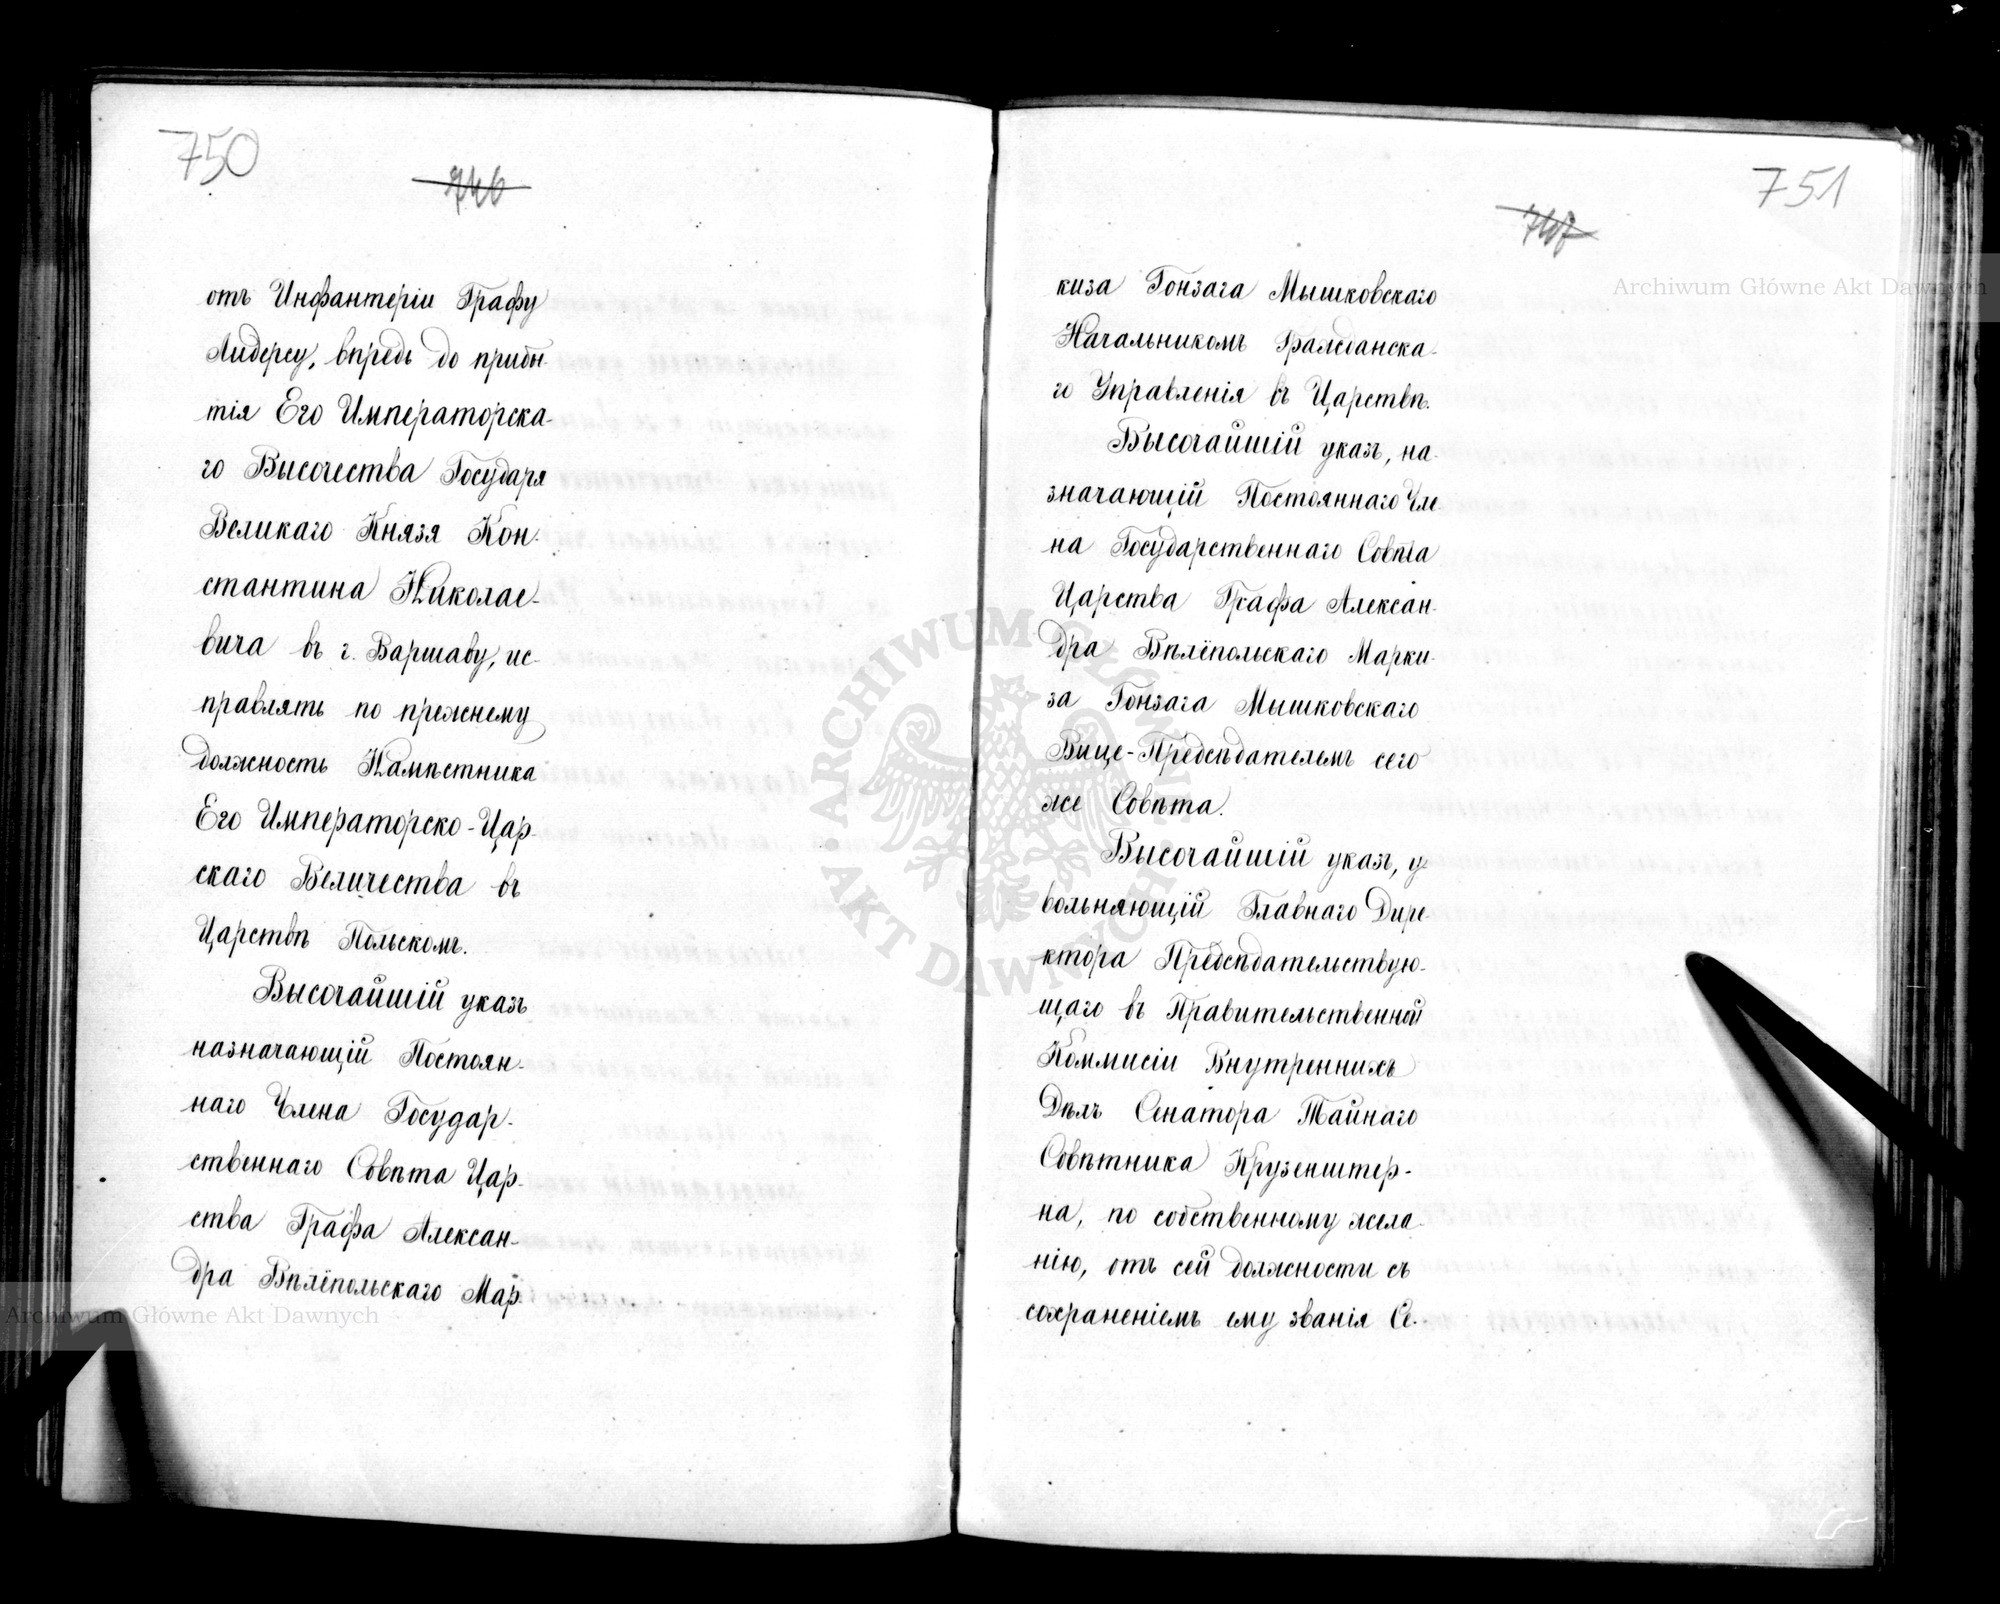 750
746
отъ Инфантеріи Графу
Лидерсу, впредь до прибы-
тія Его Императорска-
го Высочества Государя
Великаго Князя Кон-
стантина Николае-
вича въ г. Варшаву, ис-
правлять по прежнему
должность Намѣстника
Его Императорско-Цар-
скаго Величества въ
Царствѣ Польскомъ.
Высочайшій указъ
назначающій Постоян-
наго Члена Государ-
ственнаго Совѣта Цар-
ства Графа Алексан-
дра Вѣлёпольскаго Мар-
751
747
киза Гонзага Мышковскаго
Начальникомъ Гражданска-
го Управленія въ Царствѣ.
Высочайшій указъ, на-
значающій Постояннаго Чле-
на Государственнаго Совѣта
Царства Графа Алексан-
дра Вѣлёпольскаго Марки-
за Гонзага Мышковскаго
Вице-Предсѣдателемъ сего
же Совѣта.
Высочайшій указъ, у-
вольняющій Главнаго Дире-
ктора Предсѣдательствую-
щаго въ Правительственной
Коммисіи Внутреннихъ
Дѣлъ Сенатора Тайнаго
Совѣтника Крузенштер-
на, по собственному жела-
нію, отъ сей должности съ
сохраненіемъ ему званія Се-
Archiwum Główne Akt Dawnych
Archiwum Główne Akt Dawnych
ARCHIWUM GŁÓWNE AKT DAWNYCH